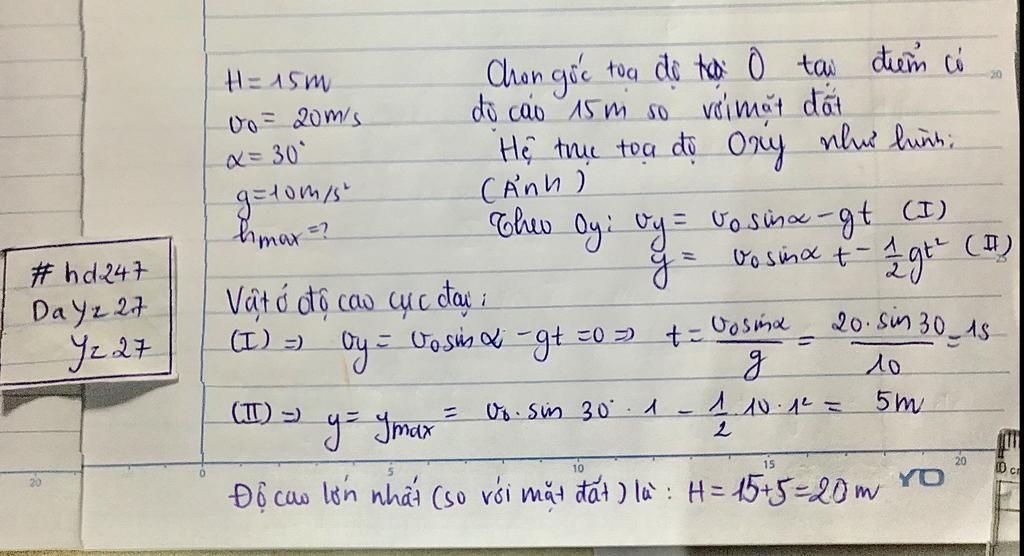 H = 15m
v₀ = 20m/s
α = 30°
g = 10m/s²
hmax = ?
Chọn gốc toạ độ O tại điểm có
độ cao 15m so với mặt đất
Hệ trục toạ độ Oxy như hình:
(Ảnh)
Theo Oy: vy = v₀ sinα - gt (I)
y = v₀ sinα t - 1/2 gt² (II)
#hd247
DaYz27
Yz27
Vật ở độ cao cực đại:
(I) => vy = v₀ sinα - gt = 0 => t = v₀ sinα / g = 20. sin 30 / 10 = 1s
(II) => y = ymax = v₀. sin 30° . 1 - 1/2 . 10 . 1² = 5m
20
0 5 10 15 20
YO
Độ cao lớn nhất (so với mặt đất) là: H = 15+5 = 20m